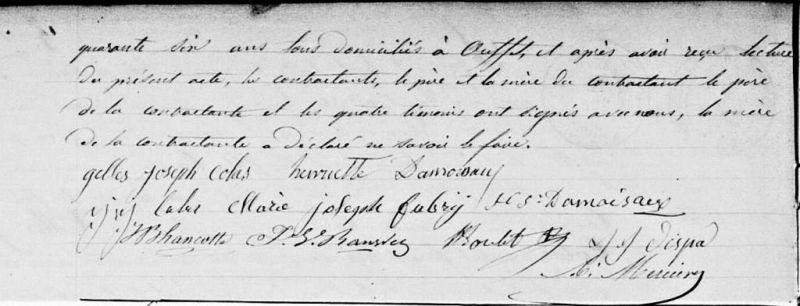 quarante six ans tous domiciliés à Ouffet, et après avoir reçu lecture
du présent acte, les contractants, le père et la mère du contractant le père
de la contractante et les quatre témoins ont signés avec nous, la mère
de la contractante a déclaré ne savoir le faire.
gilles joseph Colis henriette Damoiseau
Colis Marie joseph fabry Damoiseaux
Boulet J J Dispa